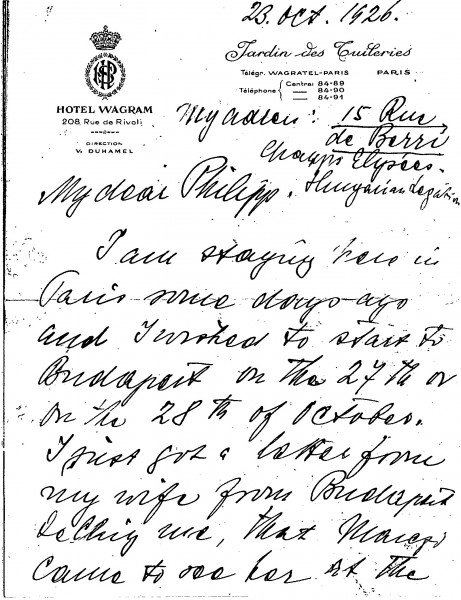 23. Oct. 1926.
Jardin des Tuileries
Télégr. WAGRATEL-PARIS PARIS
Téléphone { Central 84-89
— 84-90
— 84-91
HOTEL WAGRAM
208, Rue de Rivoli
DIRECTION
V. DUHAMEL
My adress: 15 Rue
de Berri
Champs Elysées.
Hungarian Legation
My dear Philipp.
I am staying here in
Paris some days ago
and I wished to start to
Budapest on the 27th or
on the 28th of October.
I just got a letter from
my wife from Budapest
telling me, that
came to see her at the